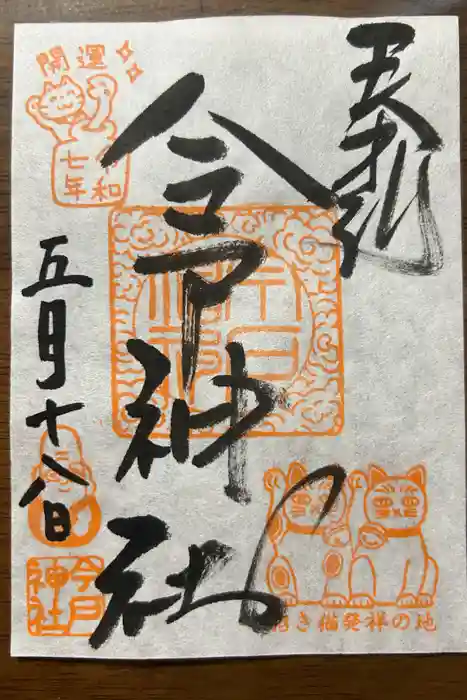 奉拝
今戸神社
今戸
神社
招き猫発祥の地
開運
令和
七年
五月十八日
今戸
神社